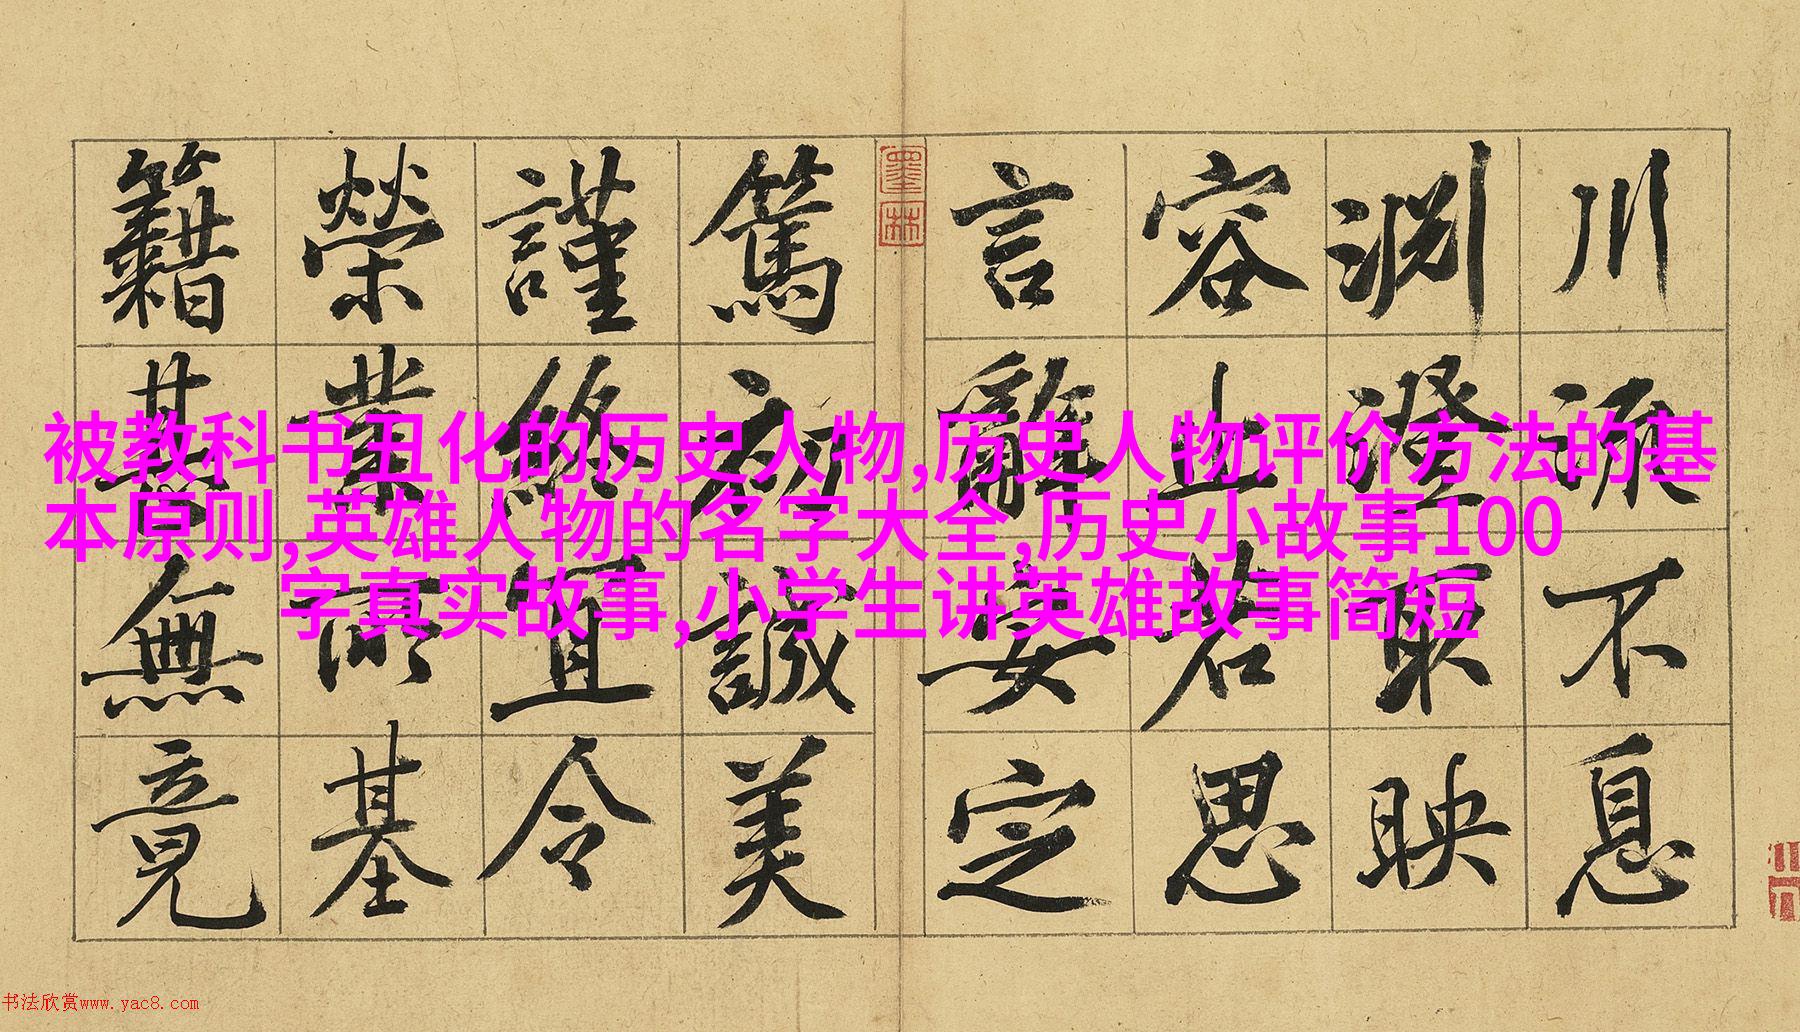 川流不息
淵澄取映
容止若思
言辭安定
墨林
篤初誠美
謹終宜令
榮業所基
籍甚無竟
被教科书丑化的历史人物,历史人物评价方法的基
本原则,英雄人物的名字大全,历史小故事100
字真实故事,小学生讲英雄故事简短
书法欣赏www.yac8.com